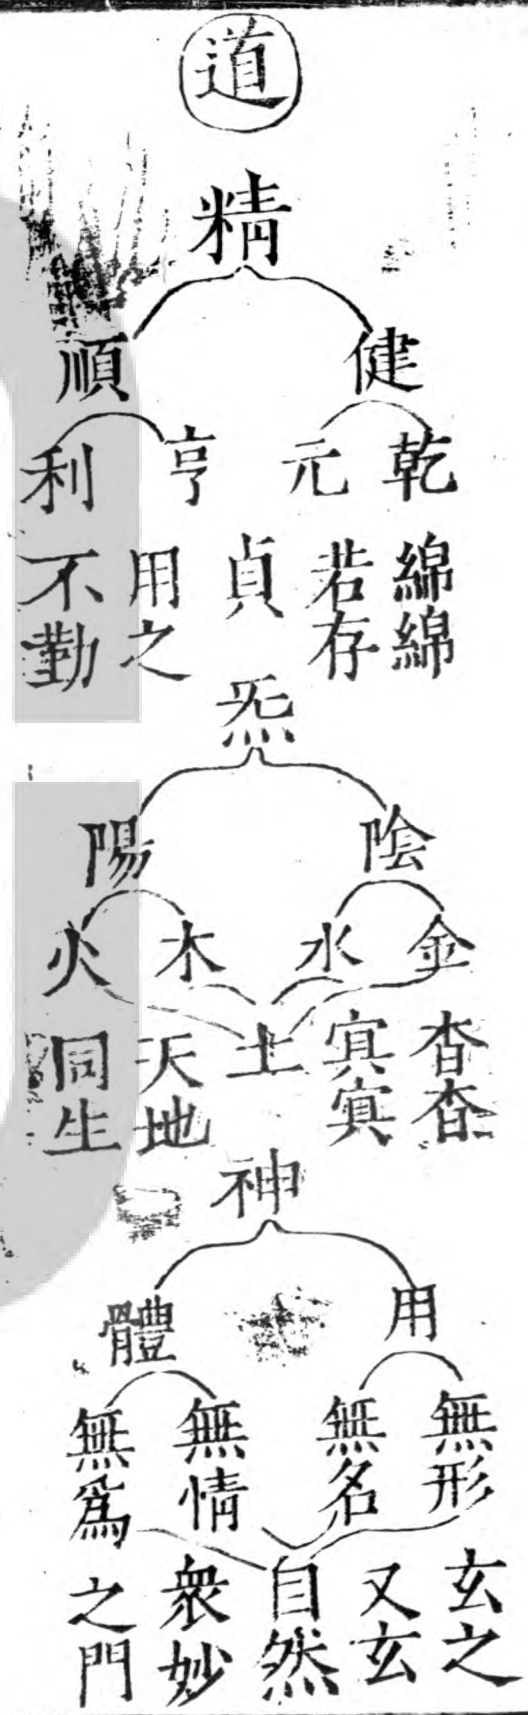 道
精
健 順
乾 元 亨 利
綿綿 若存 貞 用之 不勤
炁
陰 陽
金 水 木 火
杳杳 㝠㝠 土 天地 同生
神
用 體
無形 無名 無情 無爲
玄之 又玄 自然 衆妙 之門